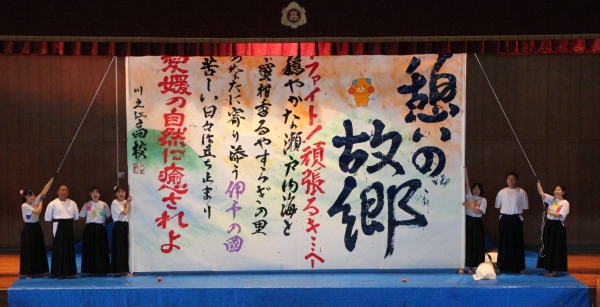 憩いの
故郷
ファイト！頑張るキミへ
穏やかな瀬戸内海と
蜜柑香るやすらぎの里
あなたに寄り添う伊予の國
苦しい日々は立ち止まり
愛媛の自然に癒されよ
川之江高校